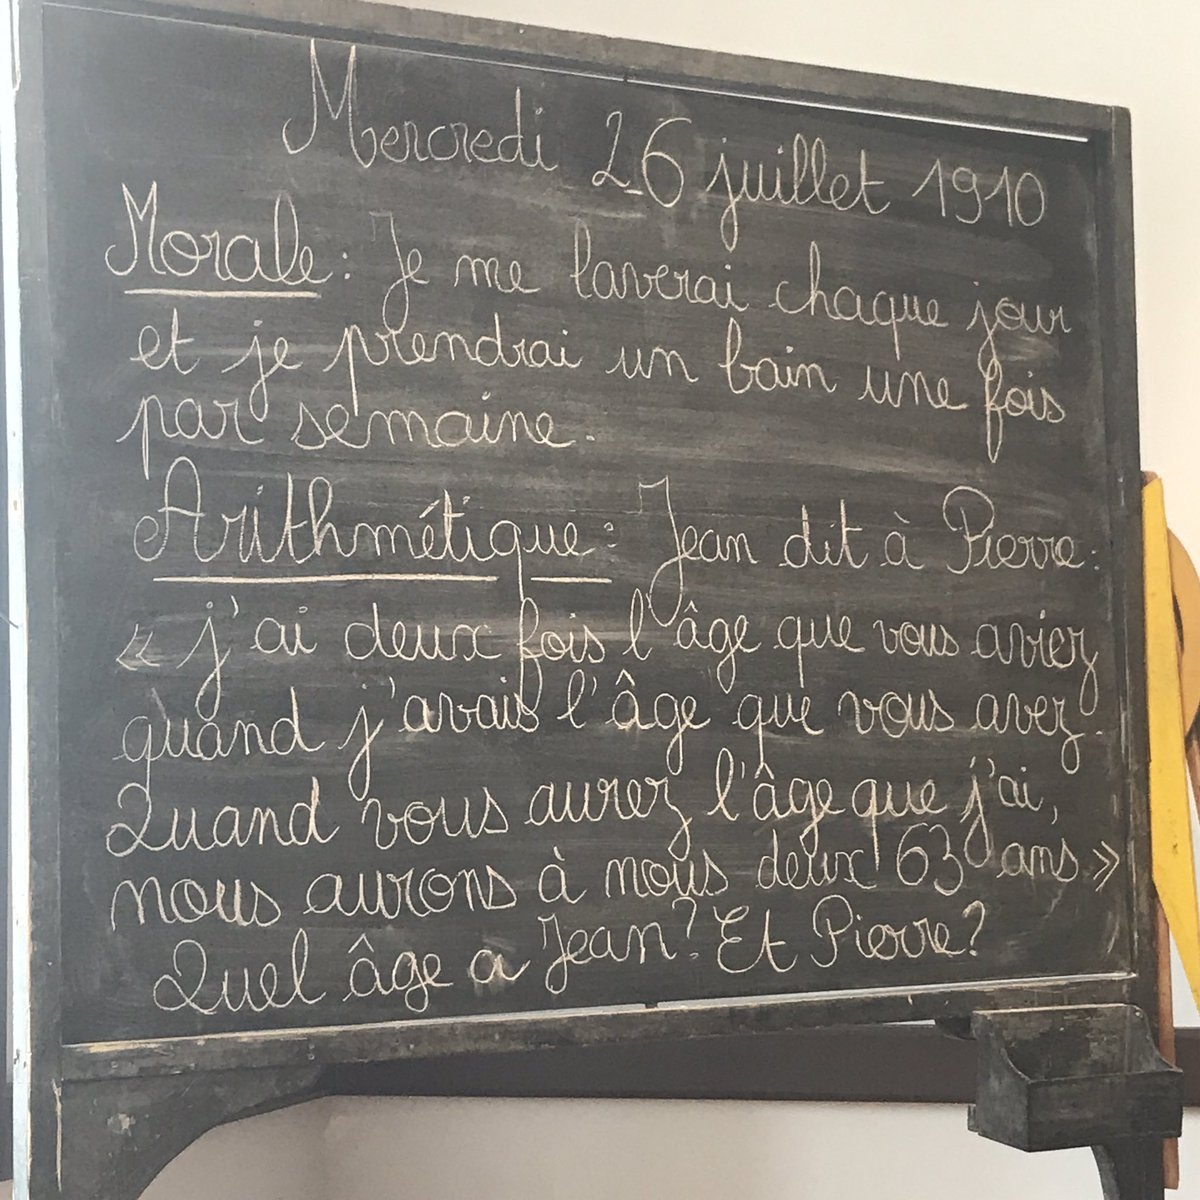 Mercredi 26 juillet 1910
Morale : Je me laverai chaque jour
et je prendrai un bain une fois
par semaine.
Arithmétique : Jean dit à Pierre :
« j'ai deux fois l'âge que vous aviez
quand j'avais l'âge que vous avez.
Quand vous aurez l'âge que j'ai,
nous aurons à nous deux 63 ans »
Quel âge a Jean ? Et Pierre ?